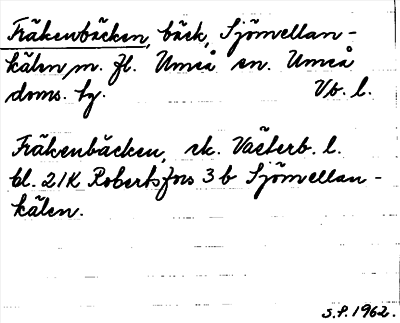 Fräkenbäcken, bäck, Sjömellan-
kälen m. fl. Umeå sn. Umeå
doms. hg. Vb. l.
Fräkenbäcken, ek. Västerb. l.
bl. 21K Robertsfors 3 b Sjömellan-
kälen.
S.P. 1962.